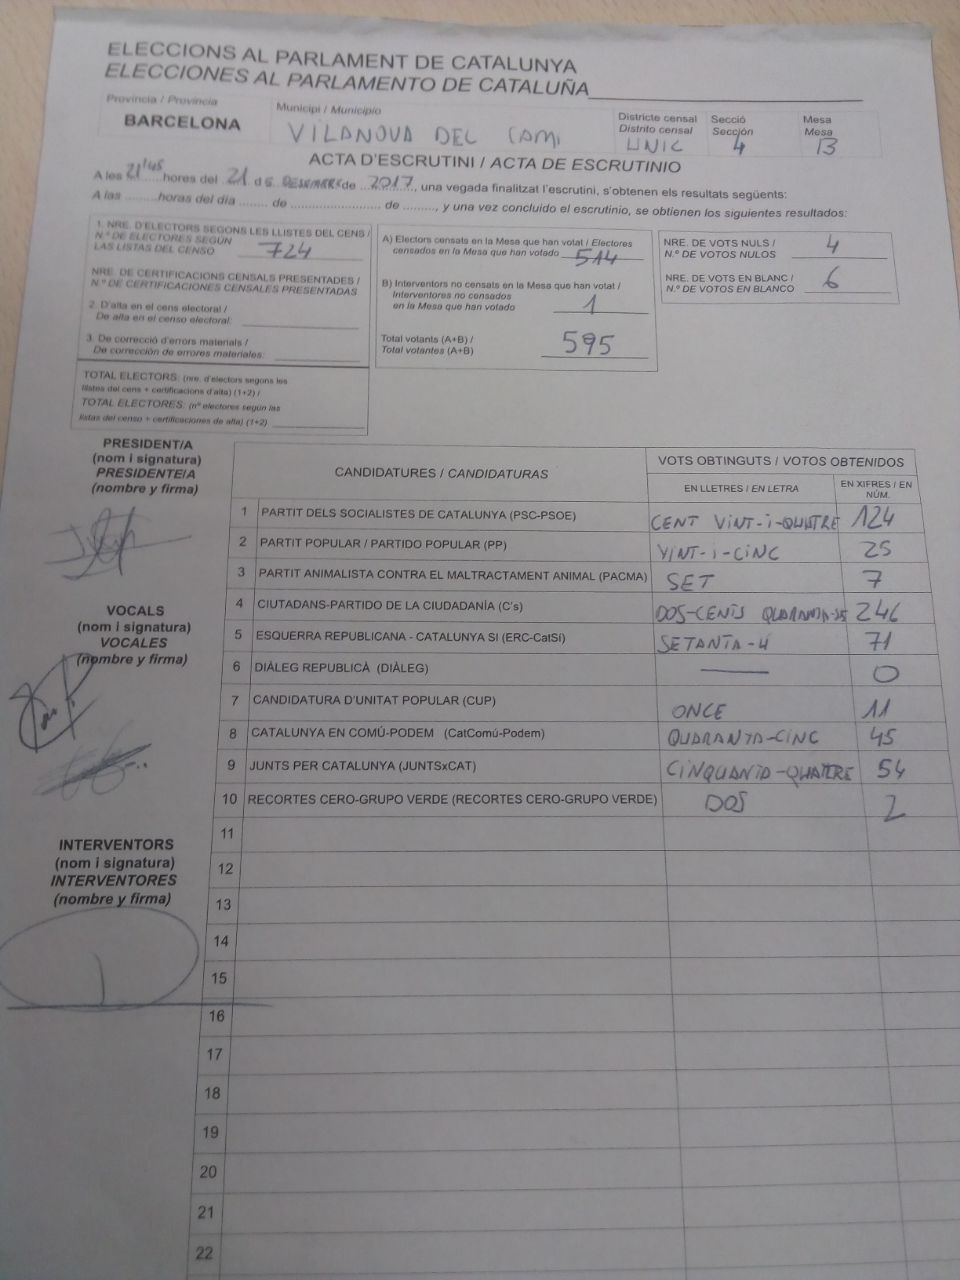 ELECCIONS AL PARLAMENT DE CATALUNYA
ELECCIONES AL PARLAMENTO DE CATALUÑA
Província / Provincia
BARCELONA
Municipi / Municipio
VILANOVA DEL CAMI
Districte censal
Distrito censal
UNIC
Secció
Sección
4
Mesa
Mesa
B
ACTA D'ESCRUTINI / ACTA DE ESCRUTINIO
A les 21'45 hores del 21 de DESEMBRE de 2017, una vegada finalitzat l'escrutini, s'obtenen els resultats següents:
A las ......... horas del día ........ de ......................... de ........., y una vez concluido el escrutinio, se obtienen los siguientes resultados:
1. NRE. D'ELECTORS SEGONS LES LLISTES DEL CENS /
N.º DE ELECTORES SEGÚN
LAS LISTAS DEL CENSO 724
NRE. DE CERTIFICACIONS CENSALS PRESENTADES /
N.º DE CERTIFICACIONES CENSALES PRESENTADAS
2. D'alta en el cens electoral /
De alta en el censo electoral:
3. De correcció d'errors materials /
De corrección de errores materiales:
TOTAL ELECTORS: (nre. d'electors segons les
llistes del cens + certificacions d'alta) (1+2) /
TOTAL ELECTORES: (nº electores según las
listas del censo + certificaciones de alta) (1+2)
A) Electors censats en la Mesa que han votat / Electores
censados en la Mesa que han votado 514
B) Interventors no censats en la Mesa que han votat /
Interventores no censados
en la Mesa que han votado 1
Total votants (A+B) /
Total votantes (A+B) 595
NRE. DE VOTS NULS /
N.º DE VOTOS NULOS 4
NRE. DE VOTS EN BLANC /
N.º DE VOTOS EN BLANCO 6
PRESIDENT/A
(nom i signatura)
PRESIDENTE/A
(nombre y firma)
VOCALS
(nom i signatura)
VOCALES
(nombre y firma)
INTERVENTORS
(nom i signatura)
INTERVENTORES
(nombre y firma)
CANDIDATURES / CANDIDATURAS
VOTS OBTINGUTS / VOTOS OBTENIDOS
EN LLETRES / EN LETRA
EN XIFRES / EN
NÚM.
1 PARTIT DELS SOCIALISTES DE CATALUNYA (PSC-PSOE) CENT VINT-I-QUATRE 124
2 PARTIT POPULAR / PARTIDO POPULAR (PP) VINT-I-CINC 25
3 PARTIT ANIMALISTA CONTRA EL MALTRACTAMENT ANIMAL (PACMA) SET 7
4 CIUTADANS-PARTIDO DE LA CIUDADANÍA (C's) DOS-CENTS QUARANTA-SIS 246
5 ESQUERRA REPUBLICANA - CATALUNYA SI (ERC-CatSí) SETANTA-U 71
6 DIÀLEG REPUBLICÀ (DIÀLEG) ——— 0
7 CANDIDATURA D'UNITAT POPULAR (CUP) ONCE 11
8 CATALUNYA EN COMÚ-PODEM (CatComú-Podem) QUARANTA-CINC 45
9 JUNTS PER CATALUNYA (JUNTSxCAT) CINQUANTA-QUATRE 54
10 RECORTES CERO-GRUPO VERDE (RECORTES CERO-GRUPO VERDE) DOS 2
11
12
13
14
15
16
17
18
19
20
21
22